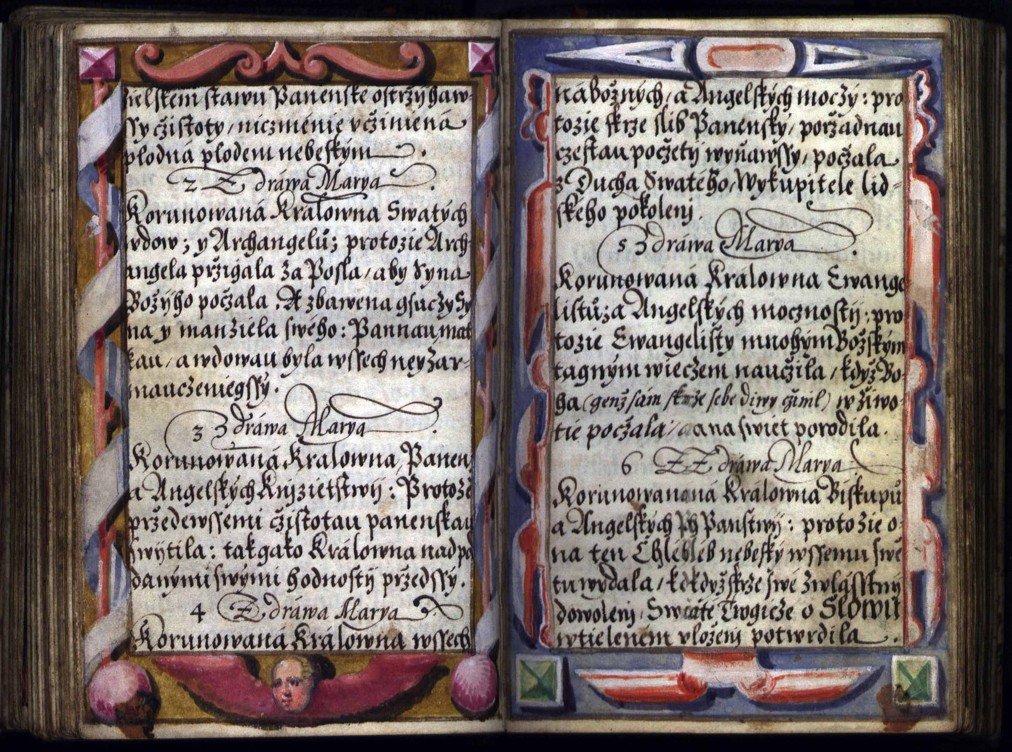 stawu Panenske ostrzyhaw-
ssy cžistoty / niczménie vcžiniená
plodná plodem nebeskym.
2 Zdráwa Marya.
Korunowaná Kralowna Swatych
wdow; y Archangelů; protozie Arch-
angela przigala za Posla / aby Syna
Božýho počzala. A zbawena gsuczy Sy
na y manžiela swého: Pannau mat
kau / a wdowau byla wssech neyžar-
mauczeniegssy.
3 Zdráwa Marya.
Korunowaná Kralowna Panen,
a Angelských Knjzietstwij: Protože
przedewssemi čzistotau panenskau
swytila: takgako Králowna nad po
danymi swými hodnostij przédssy.
4 Zdráwa Marya
Korunowaná Králowna wssech
nábožnych, a Angelských moczý: pro
tozie skrze slib Panenský / poržadnau
czestau počzetj wyňawssy / počzala
z Ducha Swatého / Wykupitele lid-
ského pokolenj.
5 Zdráwa Marya.
Korunowaná Kralowna Ewange
listů; a Angelských mocznostij: pro
tozie Ewangelisty mnohým Božským
tagným wieczem naučžila / když Bo-
ha (genž sám skrze sebe diwy cžiníl) w žiwo-
tie počzala / a na swiet porodila.
6 Zdráwa Marya
Korunowanana Králowna Biskupů
a Angelských Panstwij: protožie o-
na ten Chlebleb nebeský wssemu swě
tu wydala / kdkdyž skrze swé zwlásstnij
dowolenj / Swaté Trogicze o Slowu
wtielením vloženj potwrdila.